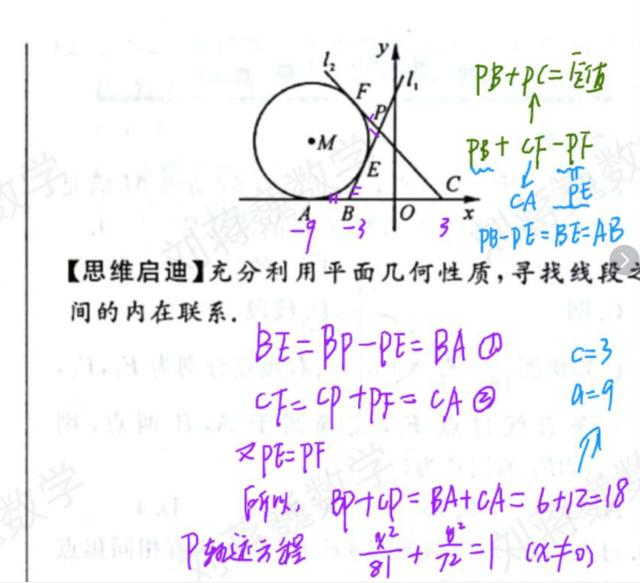 y
l₂
l₁
F
P
M
E
C
A
B
O
x
-9
-3
3
PB+PC=定值
↑
PB+CF-PF
CA
PE
PB-PE=BE=AB
【思维启迪】充分利用平面几何性质,寻找线段之
间的内在联系.
BE=BP-PE=BA ①
c=3
CF=CP+PF=CA ②
a=9
又PE=PF
所以, BP+CP=BA+CA=6+12=18
P轨迹方程 x²/81 + y²/72 = 1 (x≠0)